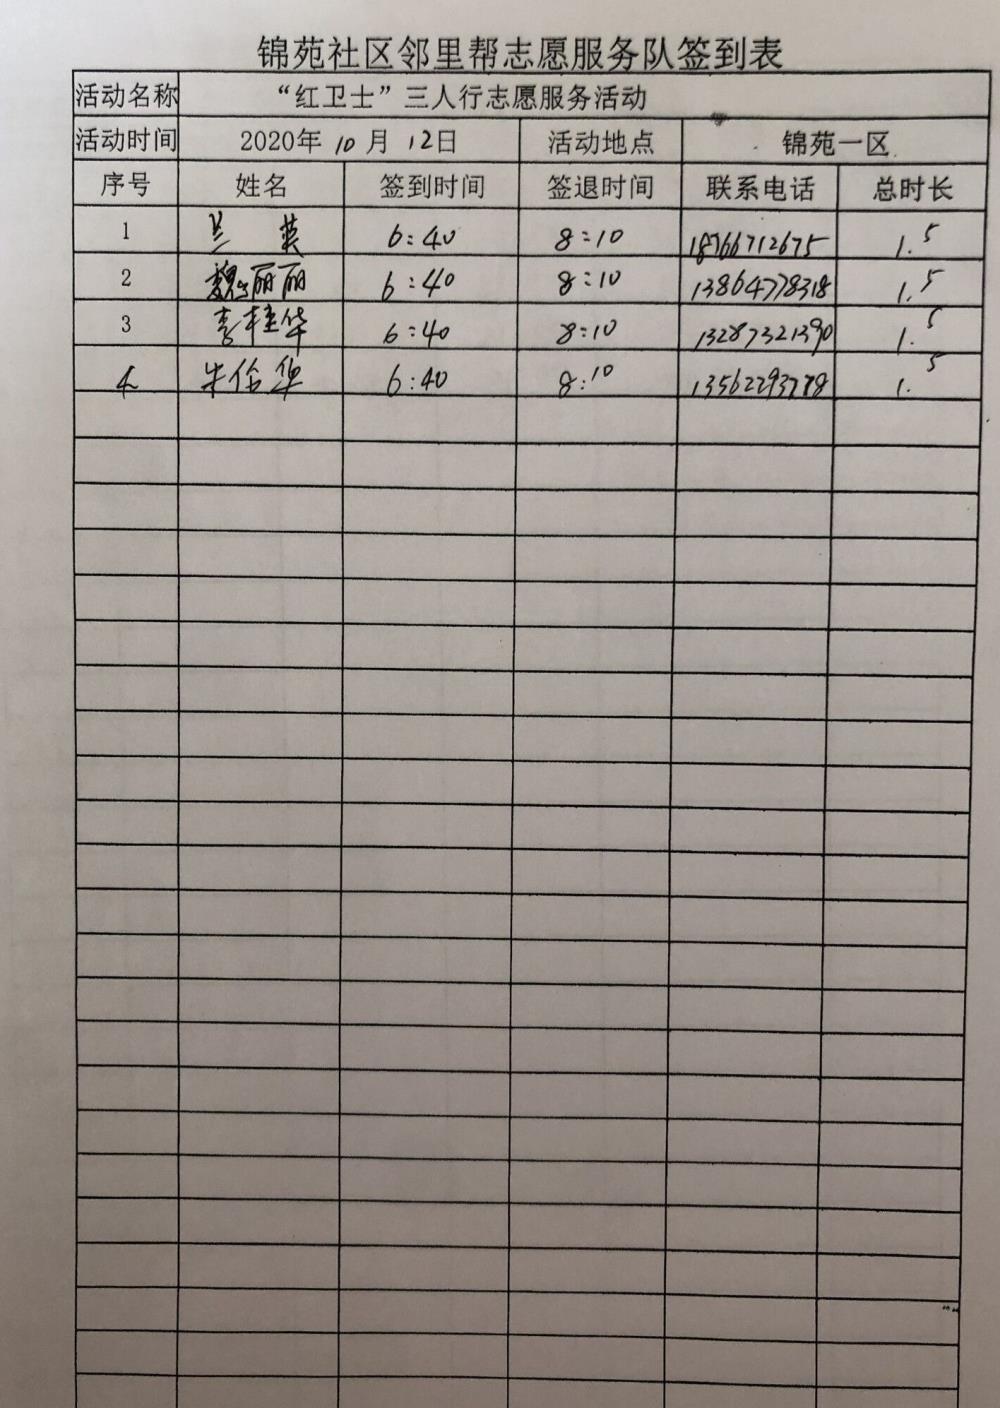 锦苑社区邻里帮志愿服务队签到表
活动名称 “红卫士”三人行志愿服务活动
活动时间 2020年 10月 12日 活动地点 锦苑一区
序号 姓名 签到时间 签退时间 联系电话 总时长
1 兰英 6:40 8:10 18766712675 1.5
2 魏丽丽 6:40 8:10 13864778318 1.5
3 李桂华 6:40 8:10 13287321390 1.5
4 朱 华 6:40 8:10 1.5